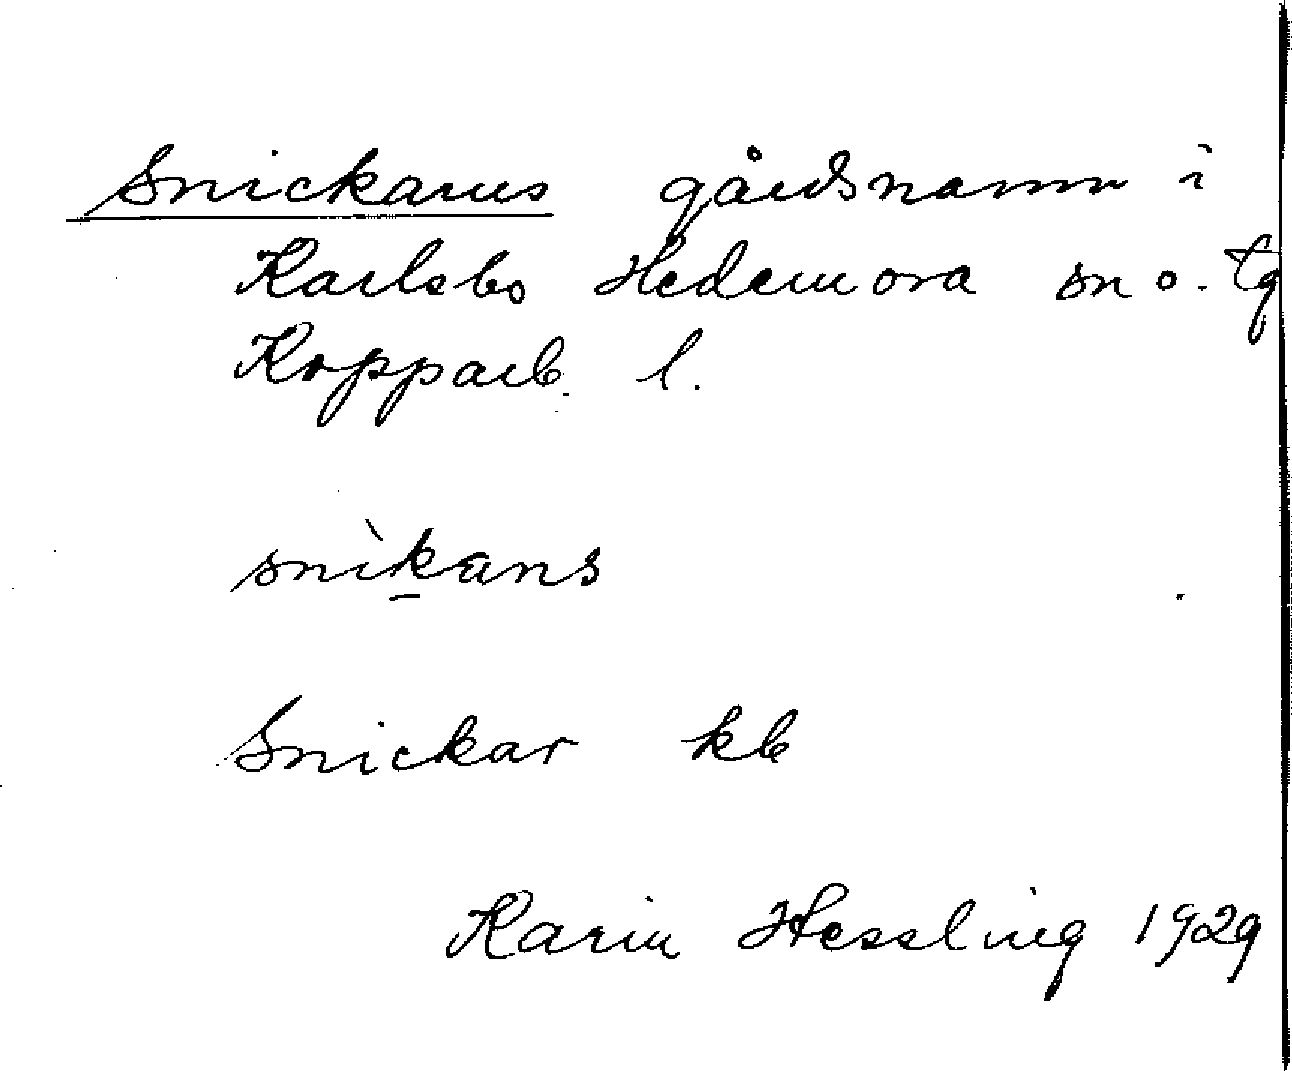 Snickarns gårdsnamn i
Karlsbo Hedemora sn o. tg
Kopparb. l.
snìkans
Snickar kb
Karin Hessling 1929